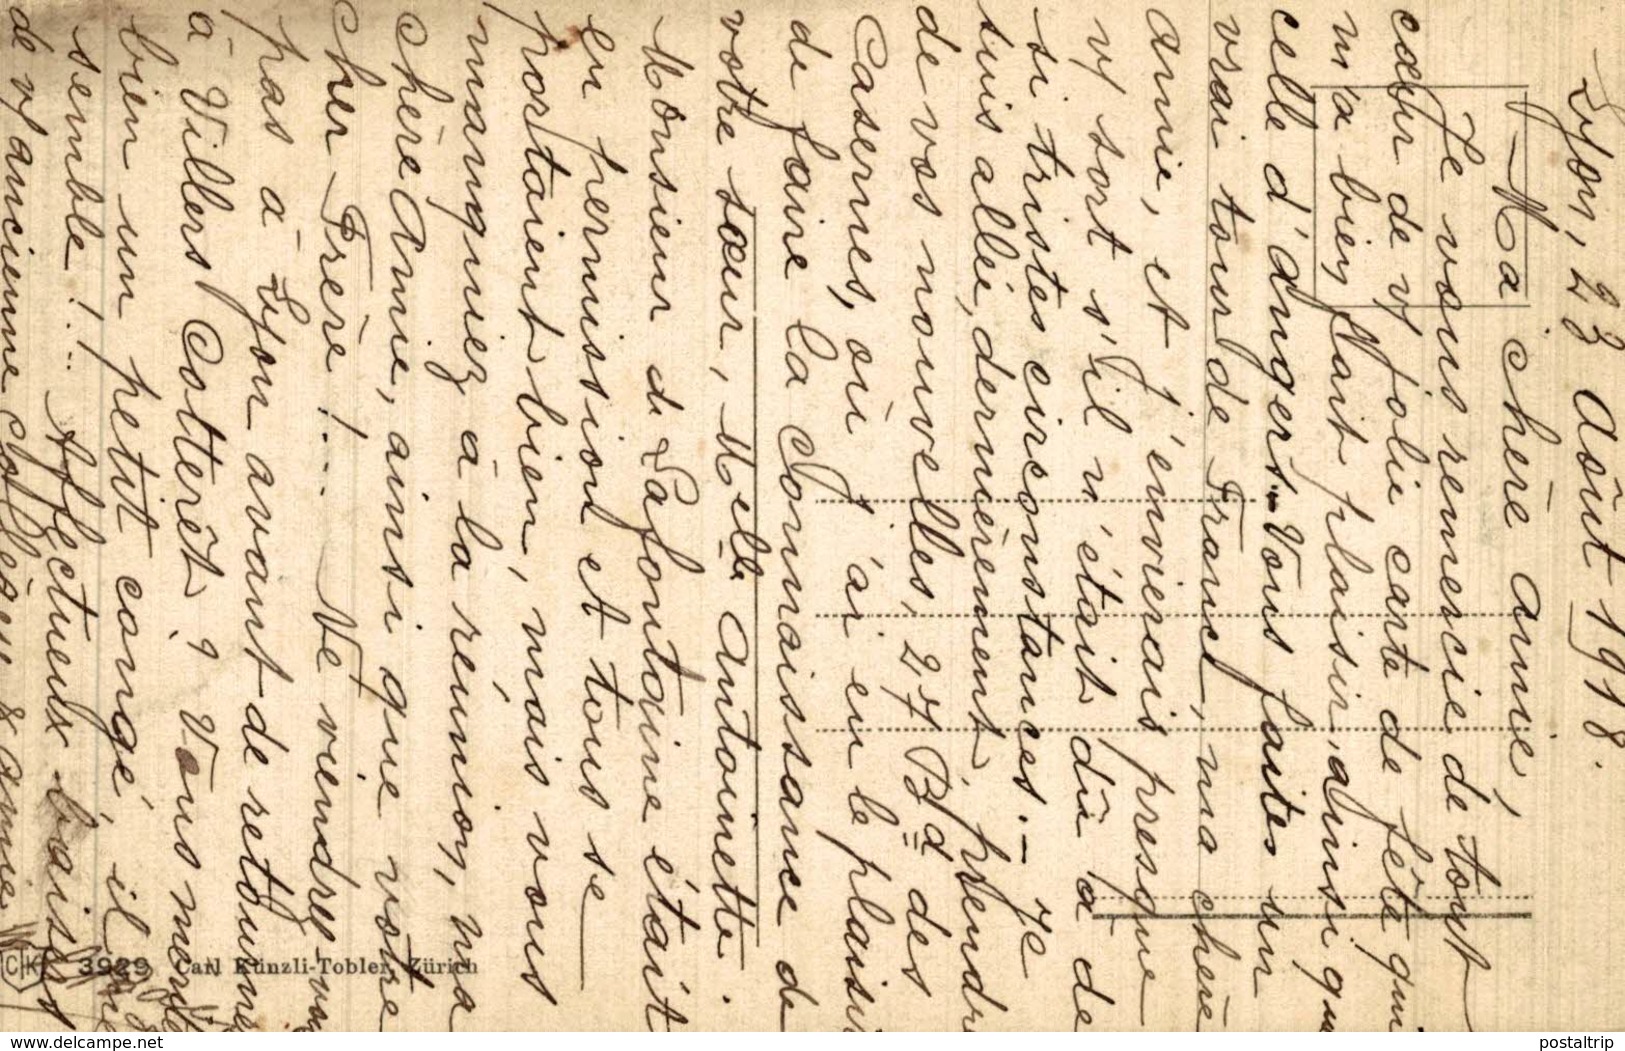 Lyon, 23 Août 1918.
Ma chère amie,
Je vous remercie de tout
cœur de v/ jolie carte de fête qui
m'a bien fait plaisir, ainsi que
celle d'Angers. Vous faites un
vrai tour de France, ma chère
amie, et j'envierais presque
v/ sort s'il n'était dû à de
si tristes circonstances. — Je
suis allée, dernièrement, prendre
de vos nouvelles, 27 Bd des
Casernes, où j'ai eu le plaisir
de faire la connaissance de
votre sœur, Melle Antoinette.
Monsieur de Lafontaine était
en permission et tous se
portaient bien, mais vous
manquiez à la réunion, ma
chère amie, ainsi que votre
cher Frère !... Ne viendrez-vous
pas à Lyon avant de retourner
à Villers Cotterêt ? Vous mérite
bien un petit congé, il me
semble !!... Affectueux baisers
de v/ ancienne collègue & amie
CK 3929 Carl Künzli-Tobler, Zürich
postaltrip.delcampe.net
postaltrip